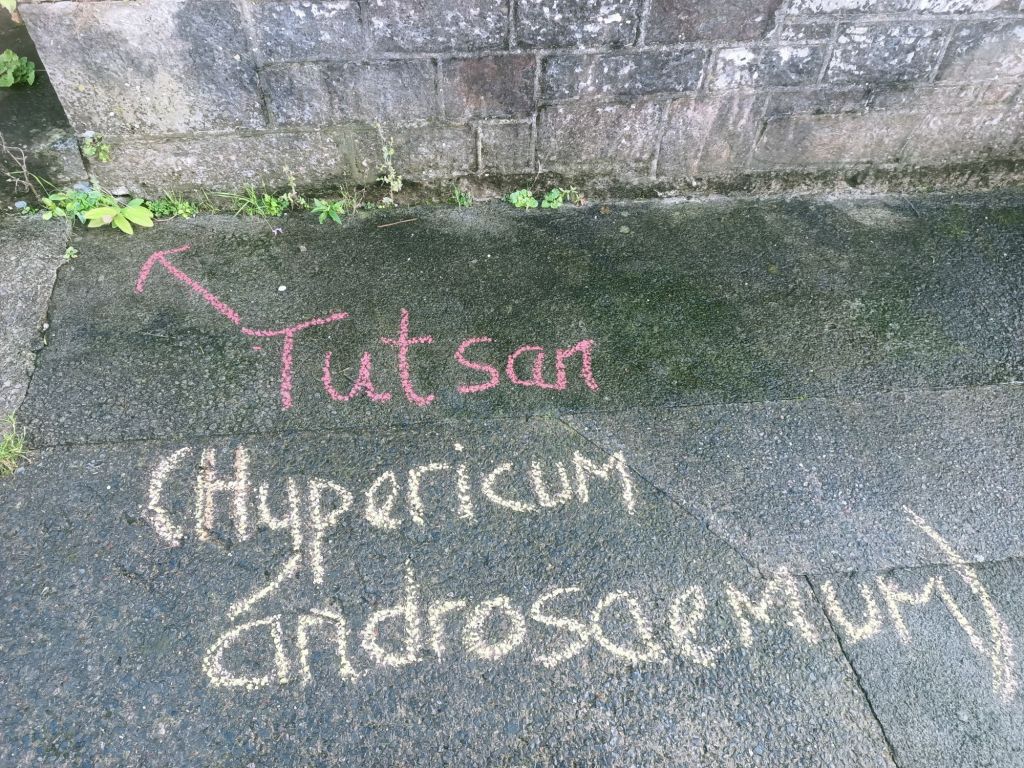 Tutsan
(Hypericum
androsaemum)